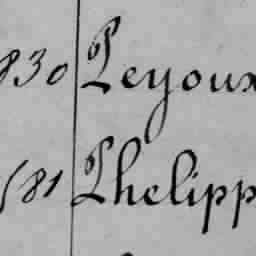 830 Peyoux
581 Phelipp